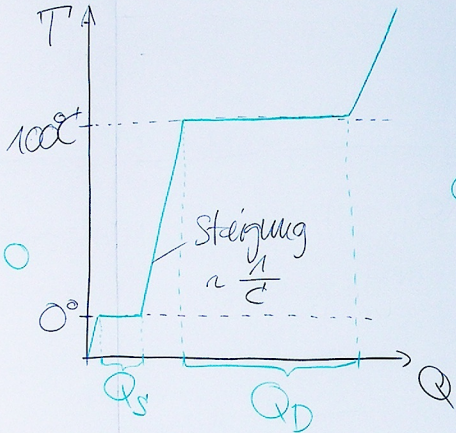 T
100°C
Steigung
~ 1/C
0°
Q_S
Q_D
Q